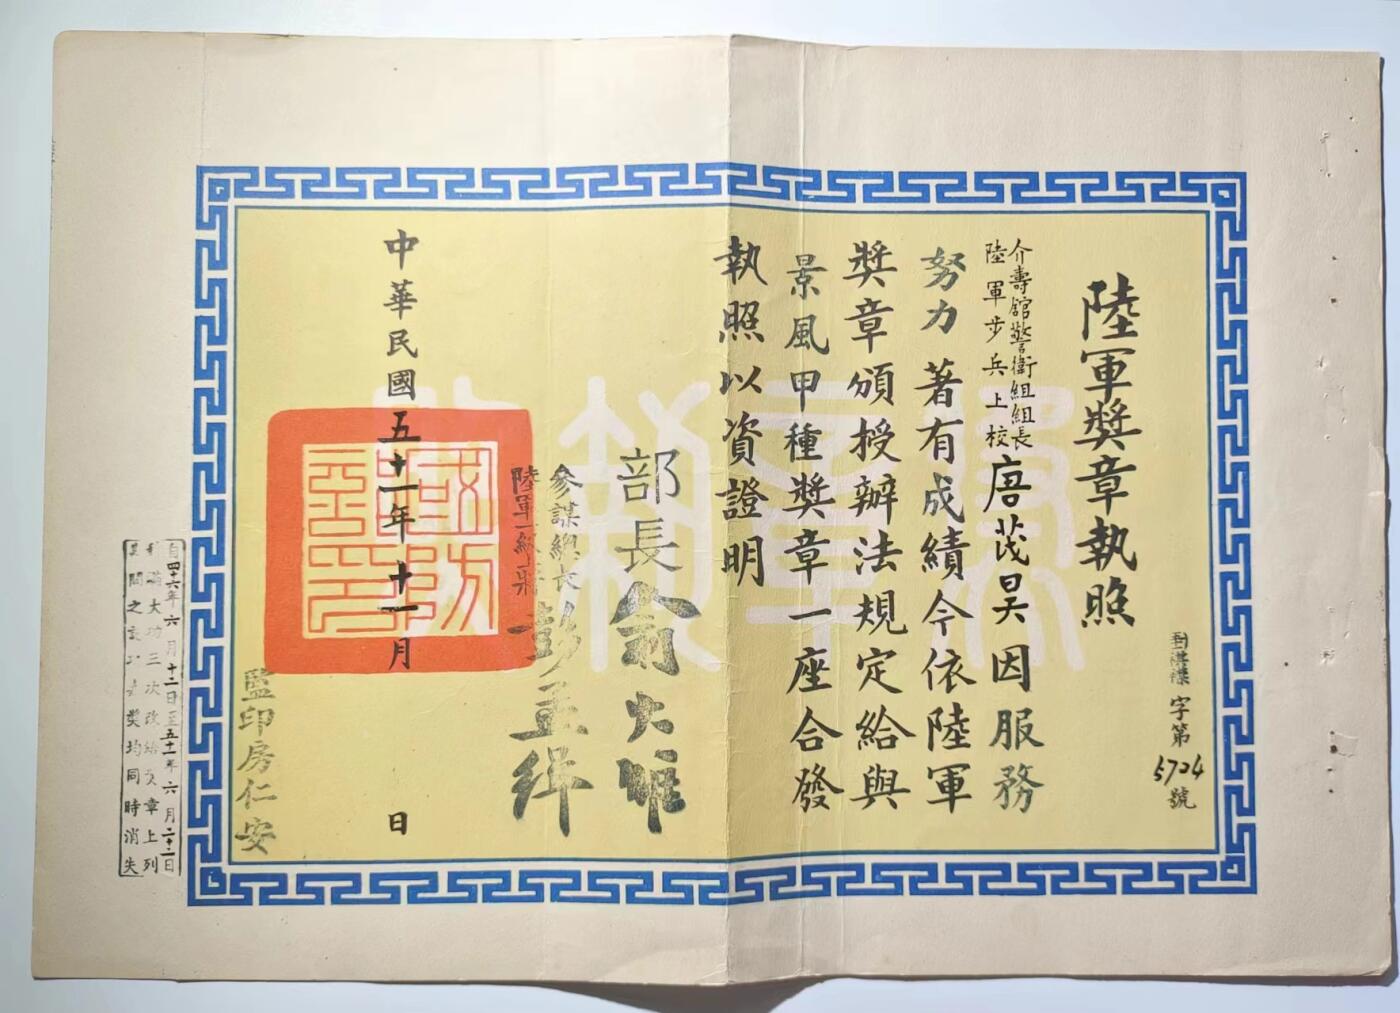 陸軍獎章執照
字第5704號
介壽館警衛組組長
陸軍步兵上校
唐茂昊因服務
努力著有成績今依陸軍
獎章頒授辦法規定給與
景風甲種獎章一座合發
執照以資證明
部長俞大維
參謀總長
陸軍一級上將
彭孟緝
中華民國五十一年十一月 日
監印房仁安
自四十六年六月十二日至五十一年六月二十二日
滿大功三次改給獎章上列
其間之記功嘉獎均同時消失
國防部印